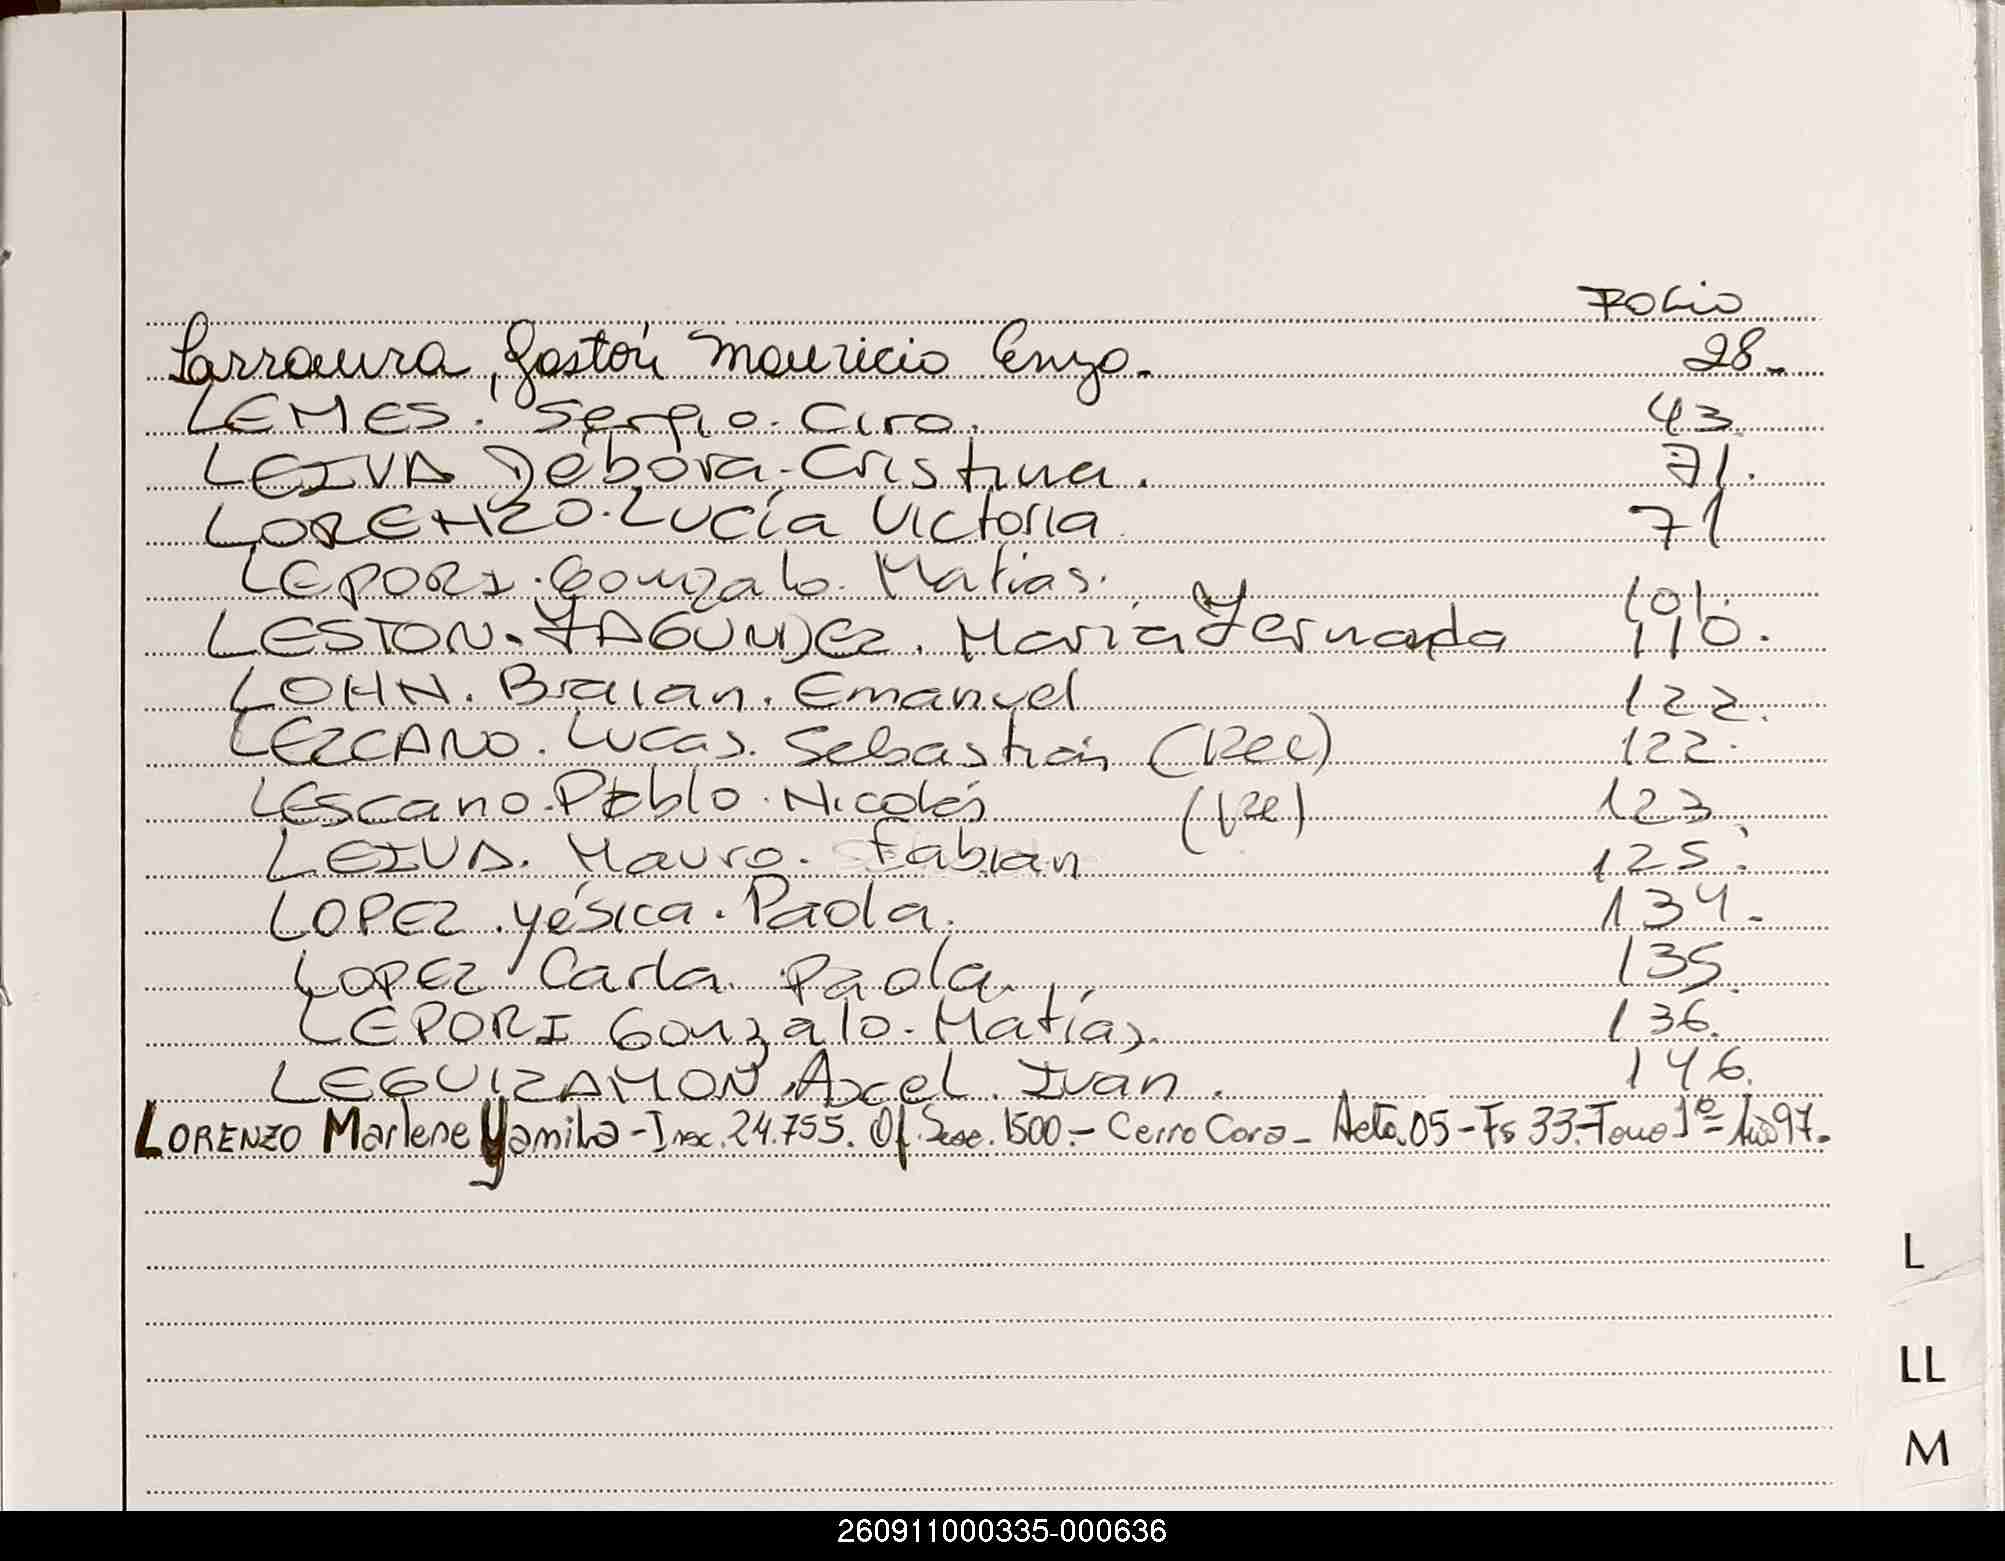 FOLIO
Larraura, Gastón Mauricio Enzo. 28.-
LEMES. Sergio. Ciro. 43.
LEIVA Débora. Cristina. 71.
LORENZO. Lucía Victoria 71
LEPORI. Gonzalo. Matías. 101.
LESTON. FAGUNDEZ. María Fernanda 110.
LOHN. Braian. Emanuel 122.
LEZCANO. Lucas. Sebastián (Rec) 122.
LEScano. Pablo. Nicolás (Re) 123
LEIVA. Mauro. Fabian 125.
LOPEZ. Yésica. Paola. 134.
LOPEZ Carla. Paola. 135.
LEPORI Gonzalo. Matías. 136.
LEGUIZAMON Axel. Ivan. 146.
LORENZO Marlene Yamila - Insc. 24.755. Of. Secc. 1500.- Cerro Cora - Acta 05 - Fs 33.- Tomo 1º - Año 97.
L
LL
M
260911000335-000636